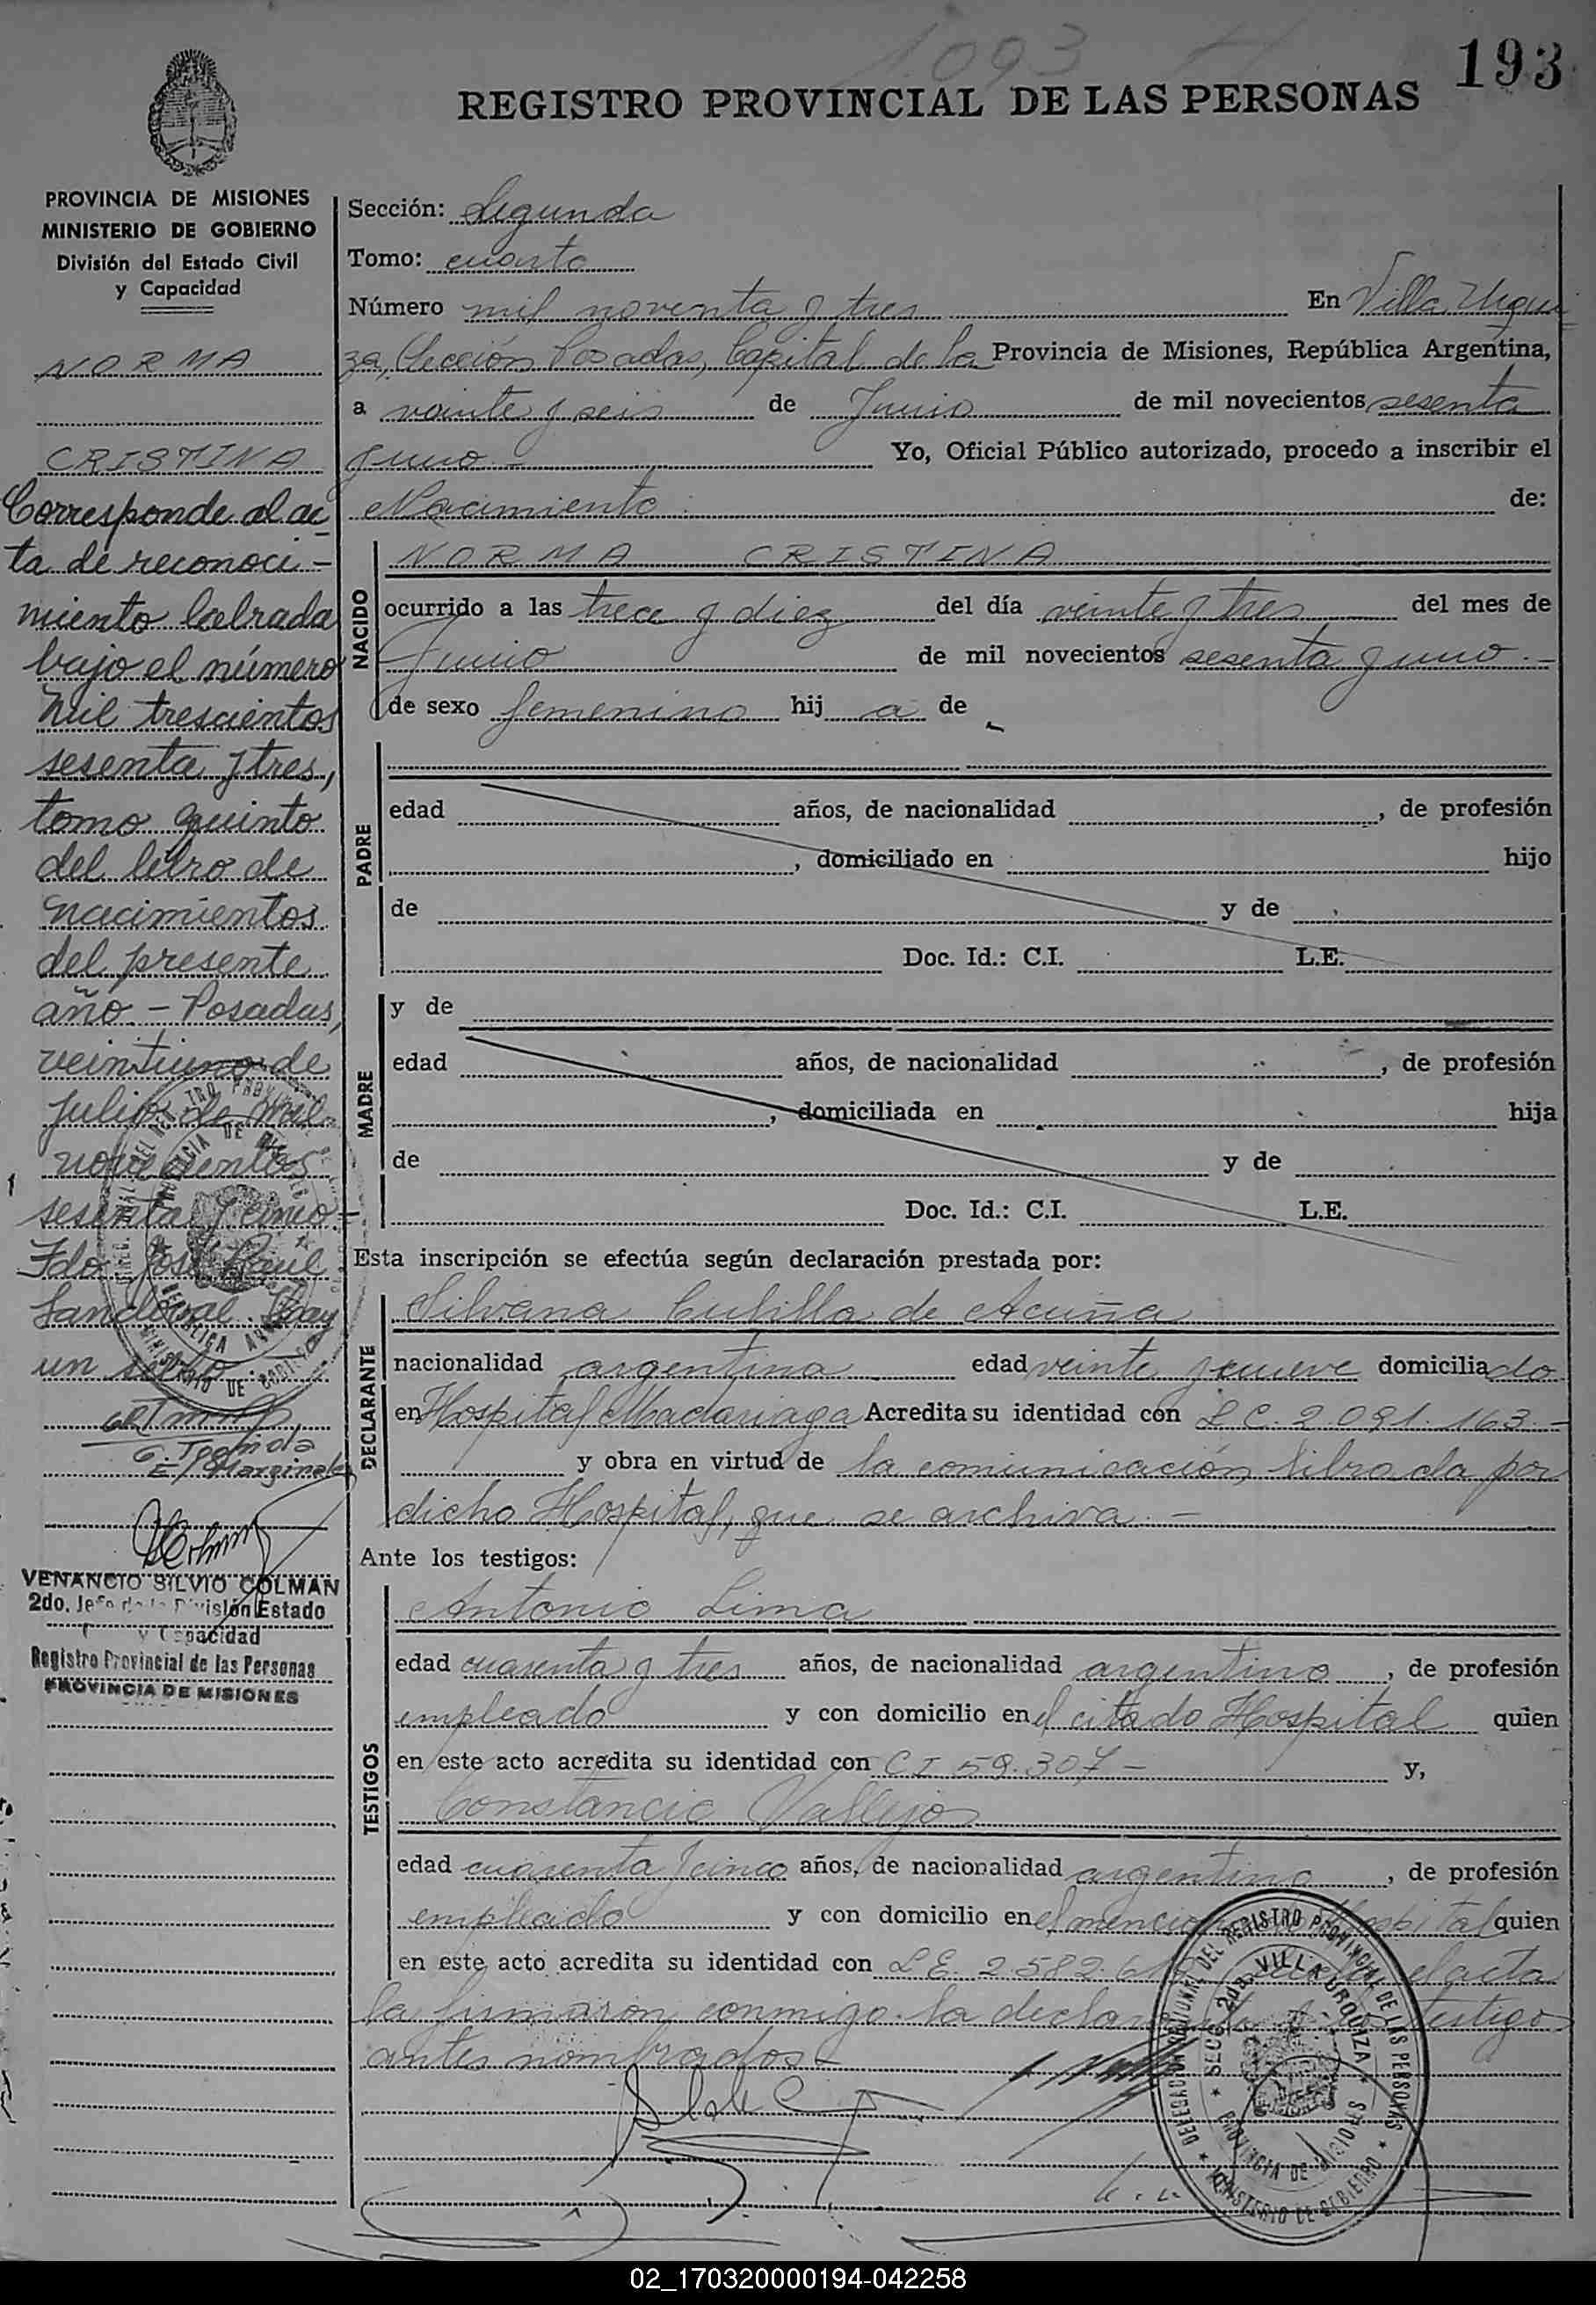 1093
193
REGISTRO PROVINCIAL DE LAS PERSONAS
PROVINCIA DE MISIONES
MINISTERIO DE GOBIERNO
División del Estado Civil
y Capacidad
NORMA
CRISTINA
Corresponde al ac
ta de reconoci-
miento labrada
bajo el número
mil trescientos
sesenta y tres,
tomo quinto
del libro de
nacimientos
del presente
año.- Posadas,
veintiuno de
julio de mil
novecientos
sesenta y
Fdo José Raúl
Sandoval. Hay
un sello.
E/ Marginales
VENANCIO SILVIO COLMAN
2do. Jefe de la División Estado
y Capacidad
Registro Provincial de las Personas
PROVINCIA DE MISIONES
Sección: Segunda
Tomo: cuarto
Número mil noventa y tres En Villa Urqui
za, Sección Posadas, Capital de la Provincia de Misiones, República Argentina,
a veinte y seis de Junio de mil novecientos sesenta
y uno.- Yo, Oficial Público autorizado, procedo a inscribir el
Nacimiento de:
NACIDO
NORMA CRISTINA
ocurrido a las trece y diez del día veinte y tres del mes de
Junio de mil novecientos sesenta y uno.-
de sexo femenino hij a de
PADRE
edad años, de nacionalidad , de profesión
, domiciliado en hijo
de y de
Doc. Id.: C.I. L.E.
MADRE
y de
edad años, de nacionalidad , de profesión
, domiciliada en hija
de y de
Doc. Id.: C.I. L.E.
Esta inscripción se efectúa según declaración prestada por:
DECLARANTE
Silvana Cubilla de Acuña
nacionalidad argentina edad veinte y nueve domiciliado
en Hospital Madariaga Acredita su identidad con L.C. 2.091.163.-
y obra en virtud de la comunicación librada por
dicho Hospital, que se archiva.-
Ante los testigos:
TESTIGOS
Antonio Lima
edad cuarenta y tres años, de nacionalidad argentino , de profesión
empleado y con domicilio en el citado Hospital quien
en este acto acredita su identidad con CI 59.307- y,
Constancio Vallejos
edad cuarenta y cinco años, de nacionalidad argentino , de profesión
empleado y con domicilio en el Hospital quien
en este acto acredita su identidad con L.E. 2.582. el acta
la firmaron conmigo la testigos
antes nombrados.-
DELEGACION DEL REGISTRO PROVINCIAL DE LAS PERSONAS
SECC. 2da. VILLA URQUIZA
PROVINCIA DE MISIONES
MINISTERIO DE GOBIERNO
02_170320000194-042258